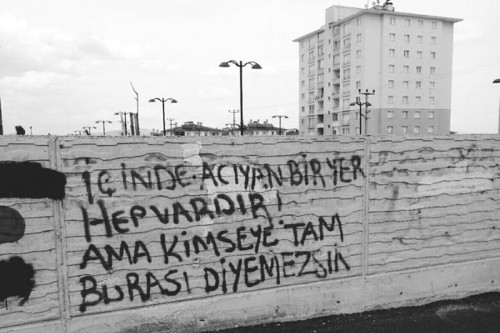 İÇİNDE ACIYAN BİR YER
HEP VARDIR!
AMA KİMSEYE TAM
BURASI DİYEMEZSİN